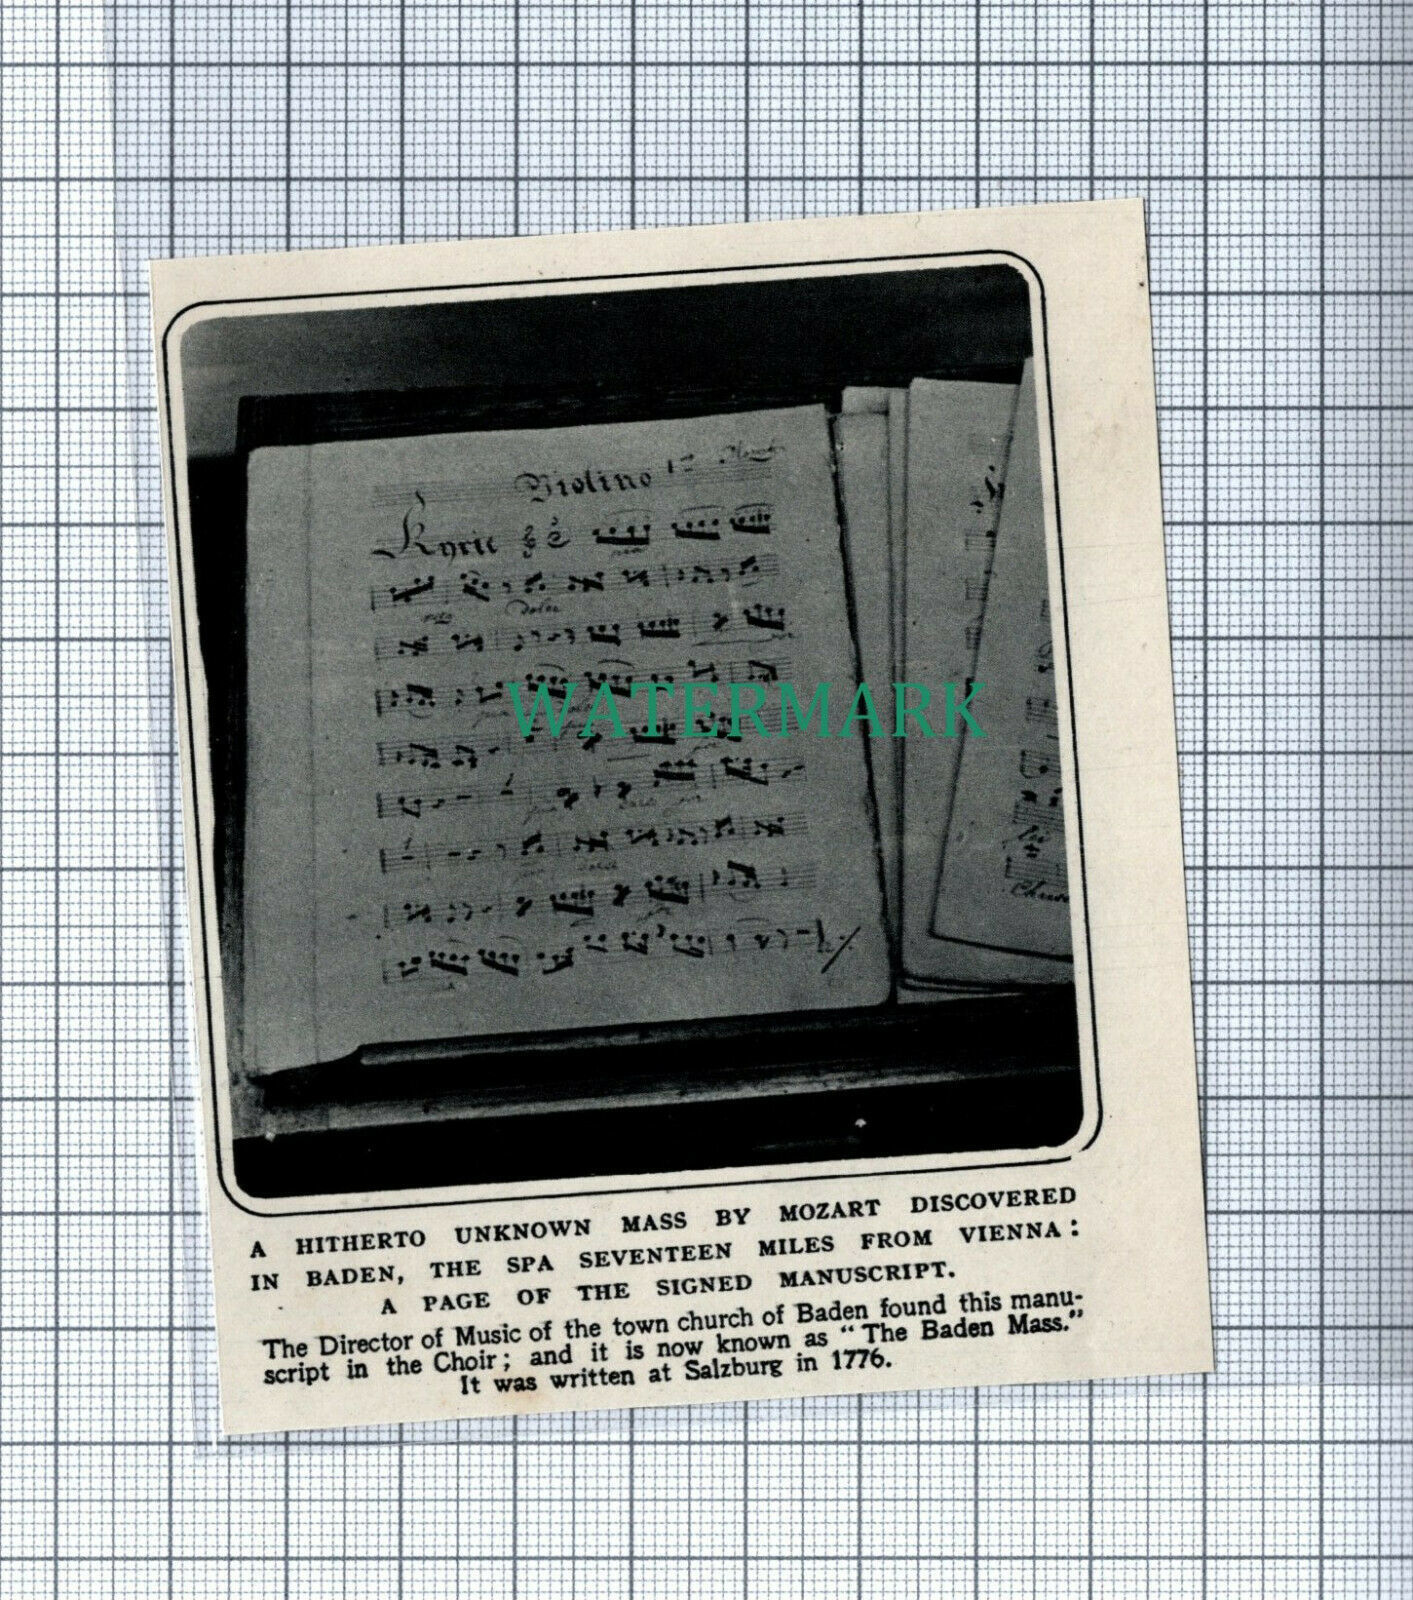 Violino 1
Kyrie
dolce
WATERMARK
A HITHERTO UNKNOWN MASS BY MOZART DISCOVERED
IN BADEN, THE SPA SEVENTEEN MILES FROM VIENNA:
A PAGE OF THE SIGNED MANUSCRIPT.
The Director of Music of the town church of Baden found this manu-
script in the Choir; and it is now known as “The Baden Mass.”
It was written at Salzburg in 1776.